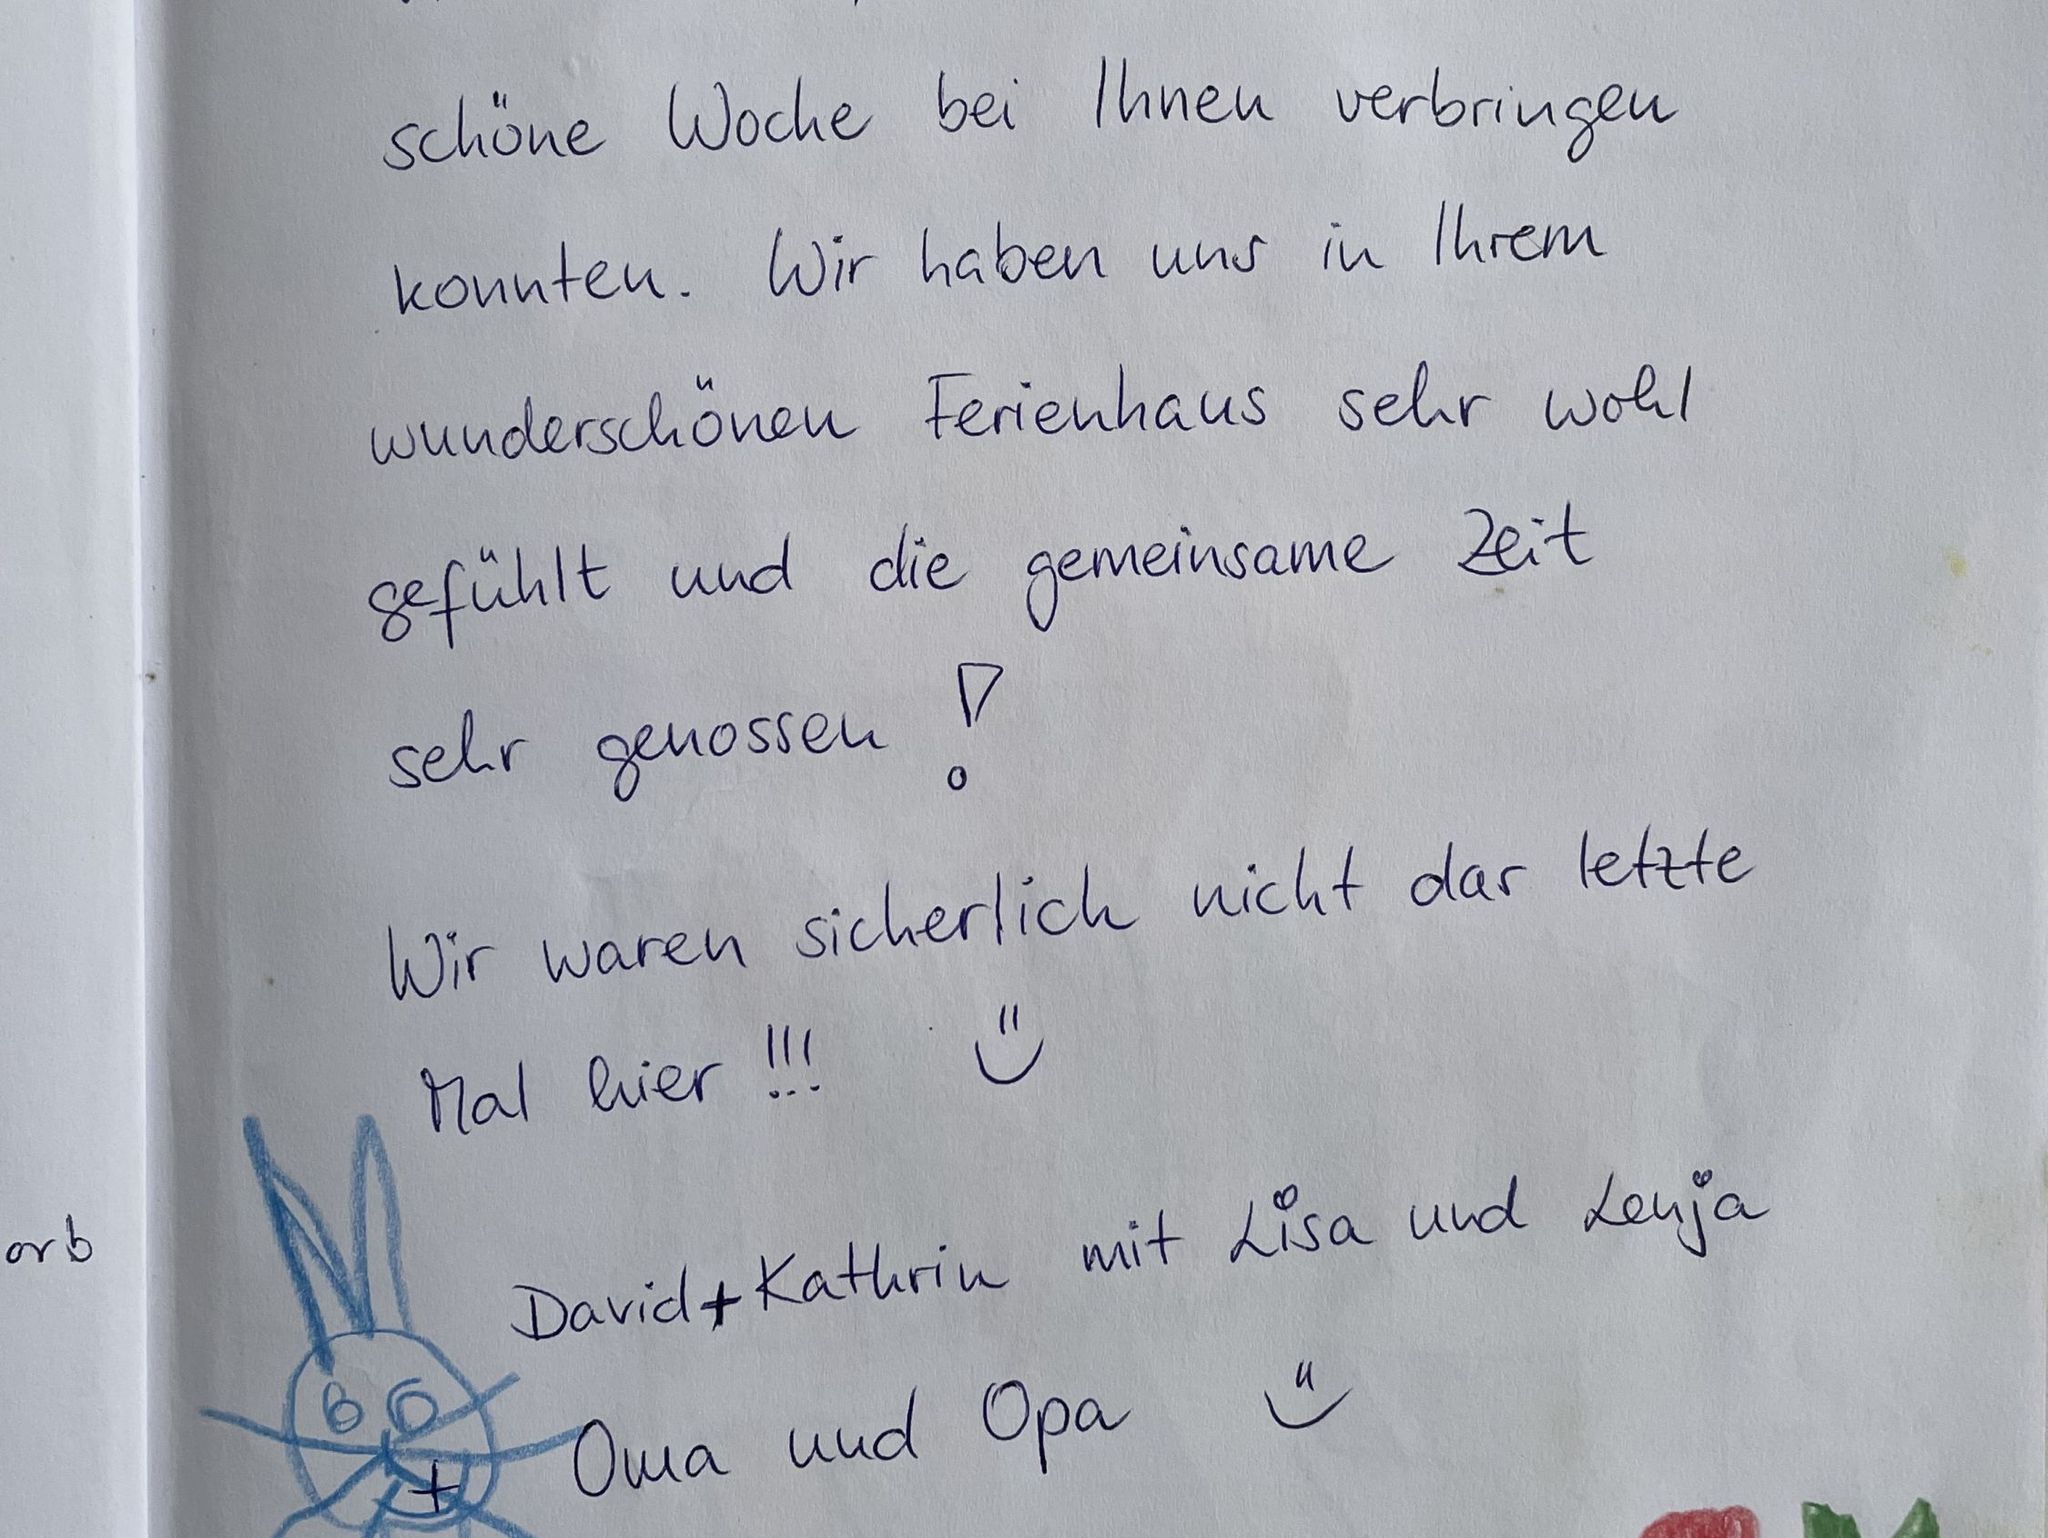 schöne Woche bei Ihnen verbringen
konnten. Wir haben uns in Ihrem
wunderschönen Ferienhaus sehr wohl
gefühlt und die gemeinsame Zeit
sehr genossen!
Wir waren sicherlich nicht das letzte
Mal hier!!! 
David + Kathrin mit Lisa und Lenja
+ Oma und Opa
orb